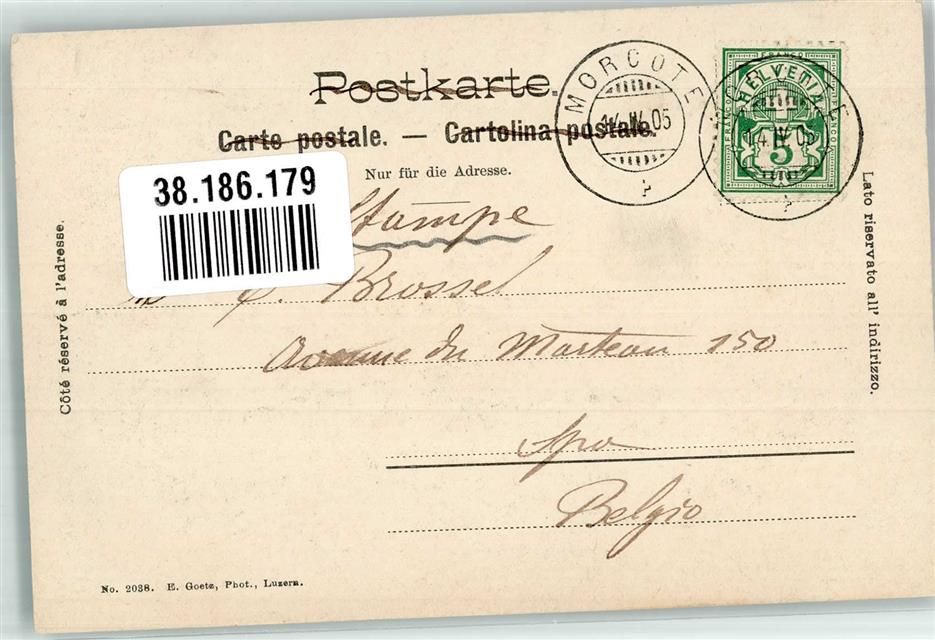 Postkarte.
Carte postale. — Cartolina postale.
Nur für die Adresse.
MORCOTE
14.IV.05
MORCOTE
14.IV.05
FRANCO
HELVETIA
FRANCO
FRANCO
5
38.186.179
Stampe
Brossel
Avenue du Marteau 150
Spa
Belgio
Côté réservé à l'adresse.
Lato riservato all' indirizzo.
No. 2038. E. Goetz, Phot., Luzern.